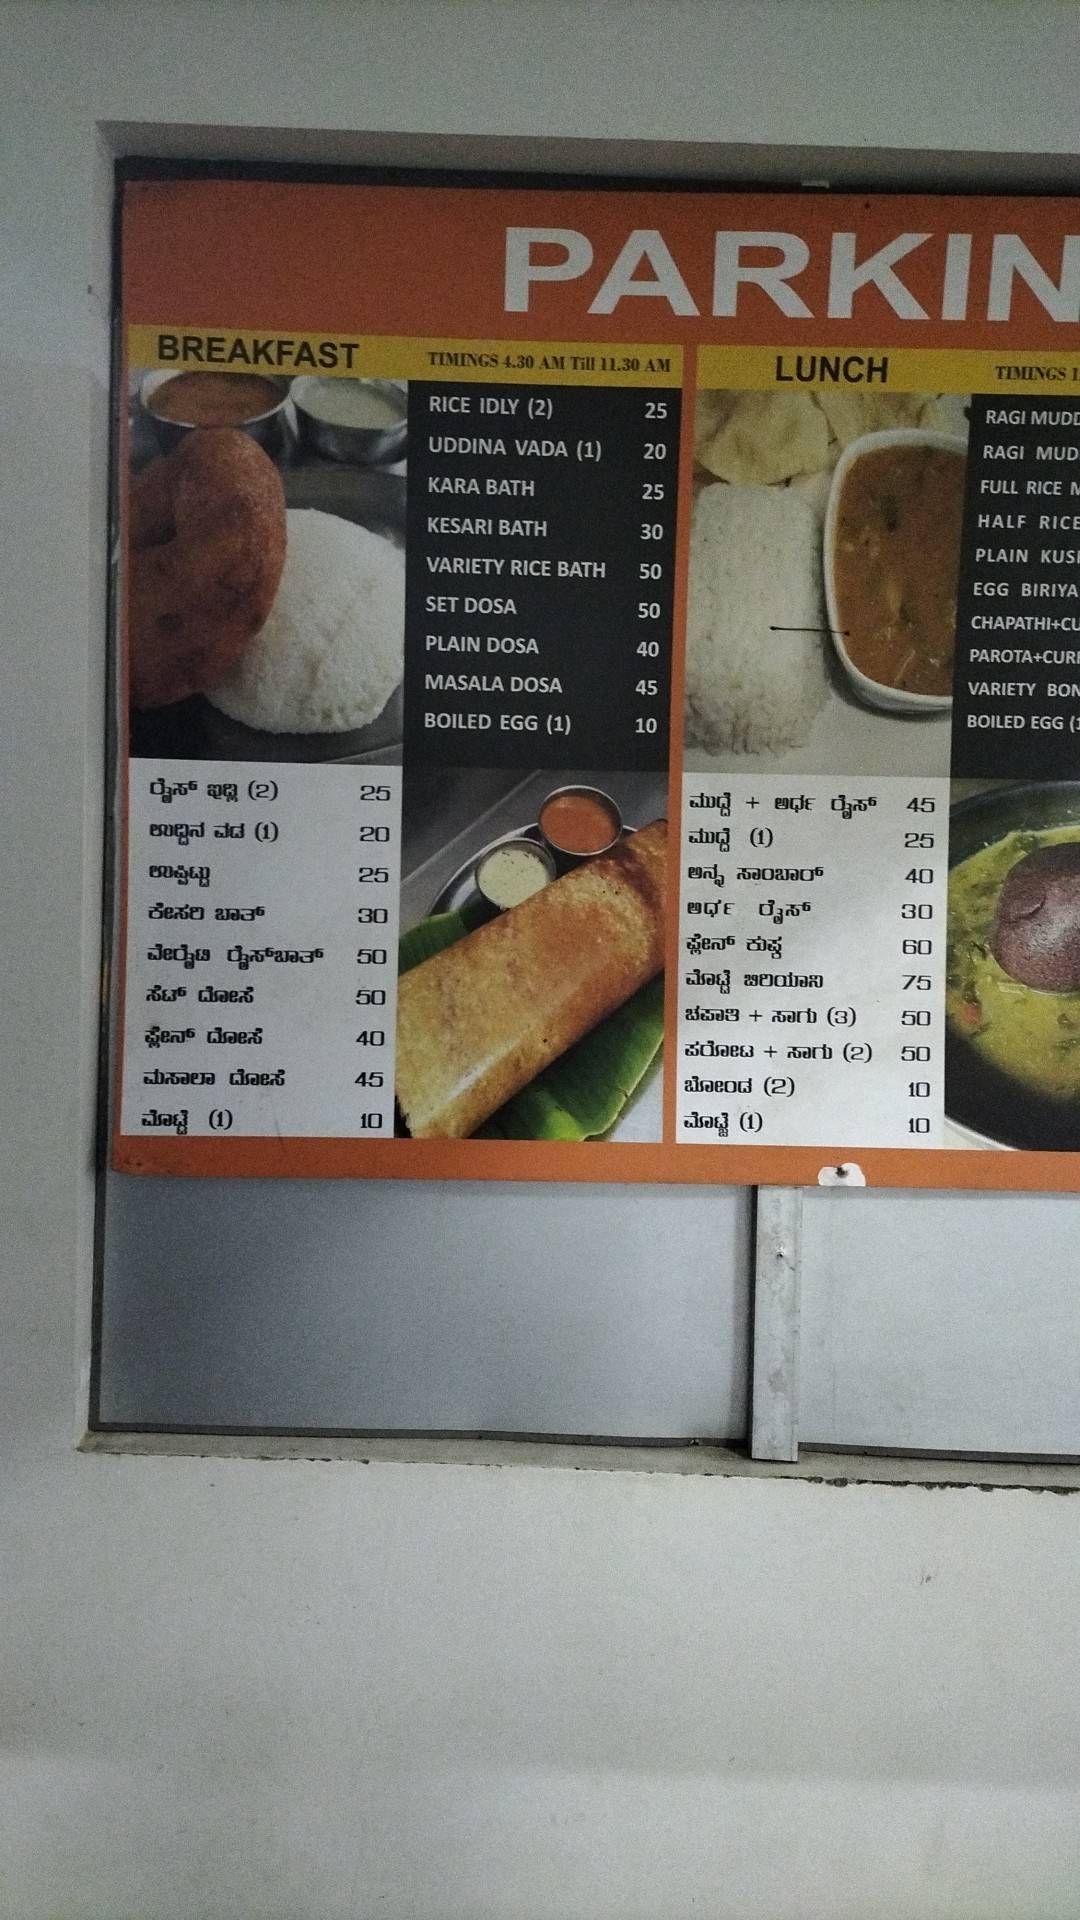 PARKIN
BREAKFAST TIMINGS 4.30 AM Till 11.30 AM
RICE IDLY (2) 25
UDDINA VADA (1) 20
KARA BATH 25
KESARI BATH 30
VARIETY RICE BATH 50
SET DOSA 50
PLAIN DOSA 40
MASALA DOSA 45
BOILED EGG (1) 10
ರೈಸ್ ಇಡ್ಲಿ (2) 25
ಉದ್ದಿನ ವಡ (1) 20
ಉಪ್ಪಿಟ್ಟು 25
ಕೇಸರಿ ಬಾತ್ 30
ವೇರೈಟಿ ರೈಸ್‌ಬಾತ್ 50
ಸೆಟ್ ದೋಸೆ 50
ಪ್ಲೇನ್ ದೋಸೆ 40
ಮಸಾಲಾ ದೋಸೆ 45
ಮೊಟ್ಟೆ (1) 10
LUNCH TIMINGS 1
RAGI MUDD
RAGI MUD
FULL RICE M
HALF RICE
PLAIN KUS
EGG BIRIYA
CHAPATHI+CU
PAROTA+CUR
VARIETY BON
BOILED EGG (1
ಮುದ್ದೆ + ಅರ್ಧ ರೈಸ್ 45
ಮುದ್ದೆ (1) 25
ಅನ್ನ ಸಾಂಬಾರ್ 40
ಅರ್ಧ ರೈಸ್ 30
ಪ್ಲೇನ್ ಕುಷ್ಕ 60
ಮೊಟ್ಟೆ ಬಿರಿಯಾನಿ 75
ಚಪಾತಿ + ಸಾಗು (3) 50
ಪರೋಟ + ಸಾಗು (2) 50
ಬೋಂಡ (2) 10
ಮೊಟ್ಟೆ (1) 10